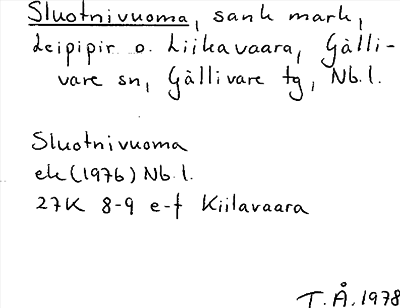 Sluotnivuoma, sank mark,
Leipipir o. Liikavaara, Gälli-
vare sn, Gällivare tg, Nb.l.
Sluotnivuoma
ek (1976) Nb.l.
27K 8-9 e-f Kiilavaara
T.Å. 1978